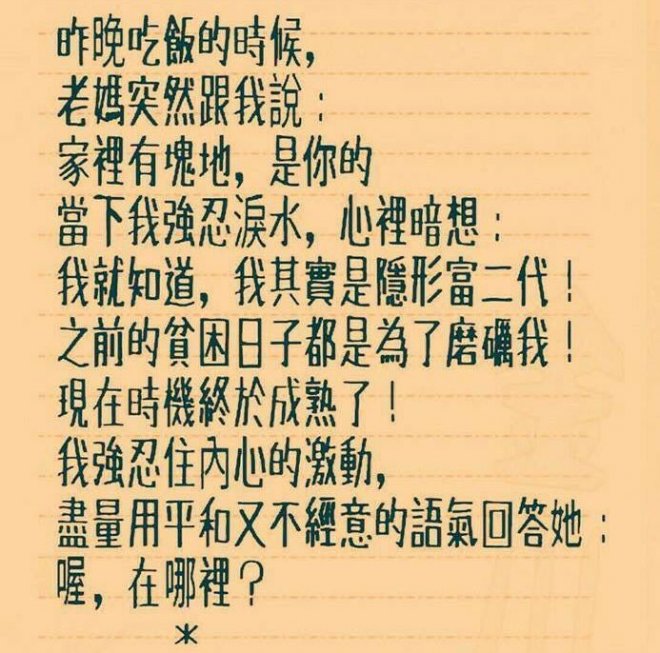 昨晚吃飯的時候，
老媽突然跟我說：
家裡有塊地，是你的
當下我強忍淚水，心裡暗想：
我就知道，我其實是隱形富二代！
之前的貧困日子都是為了磨礪我！
現在時機終於成熟了！
我強忍住內心的激動，
盡量用平和又不經意的語氣回答她：
喔，在哪裡？
*